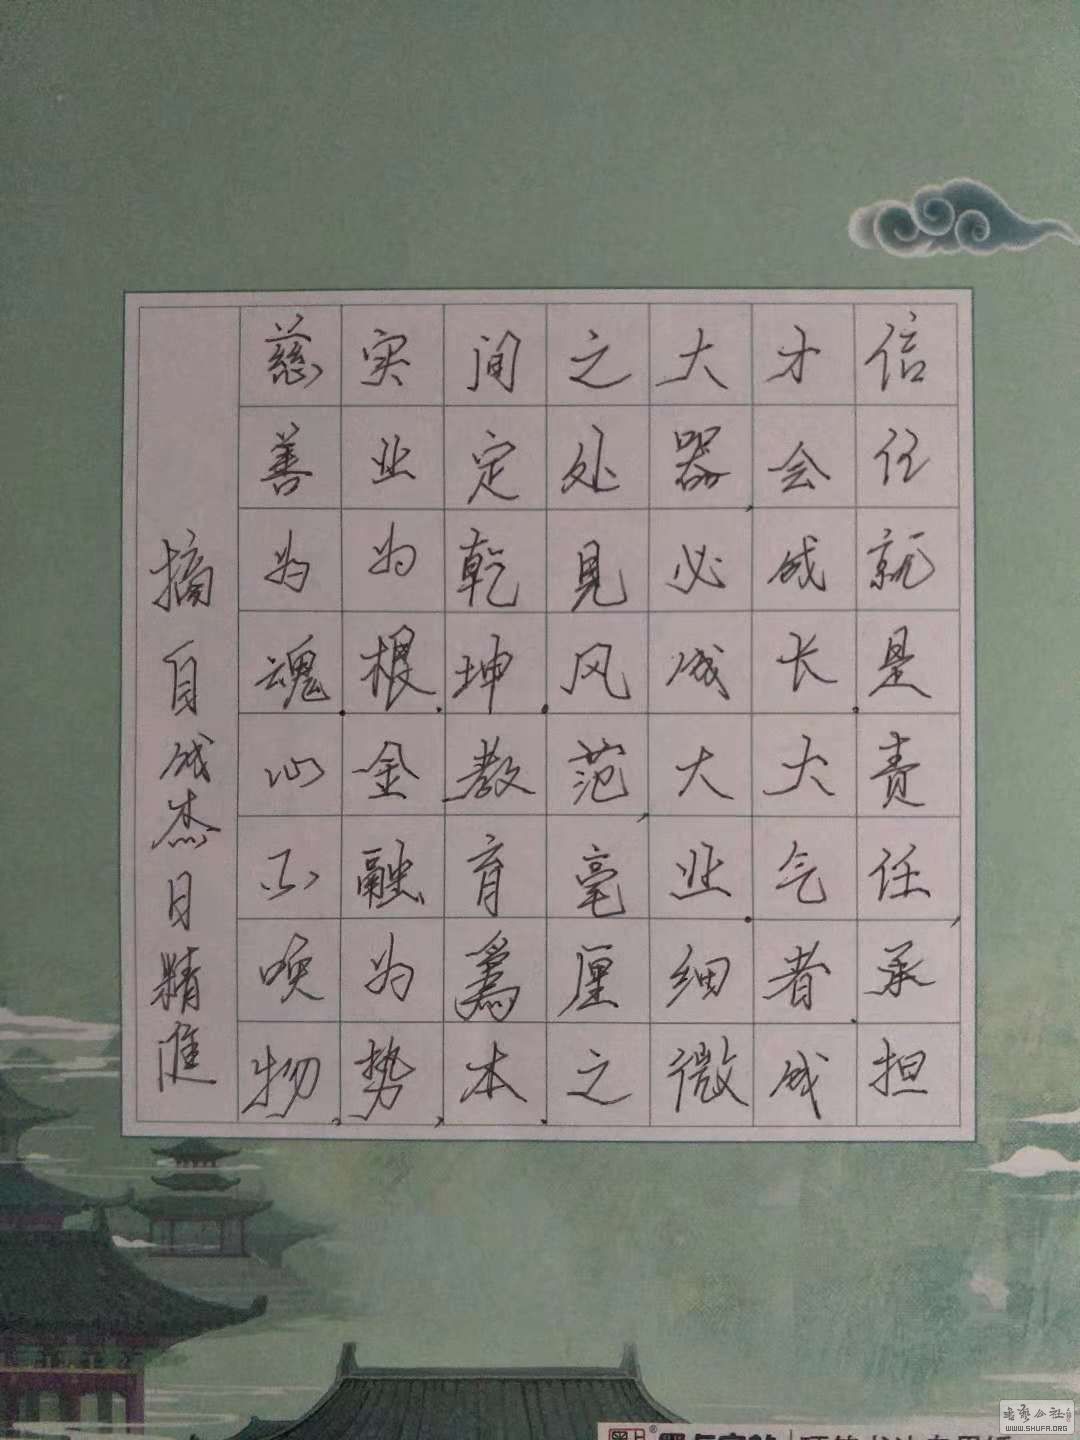 信任就是责任，承担
才会成长。大气者，成
大器，必成大业。细微
之处見风范，毫厘之
间定乾坤。教育爲本，
实业为根，金融为势，
慈善为魂。心不唤物，
摘自成杰日精進
WWW.SHUFA.ORG